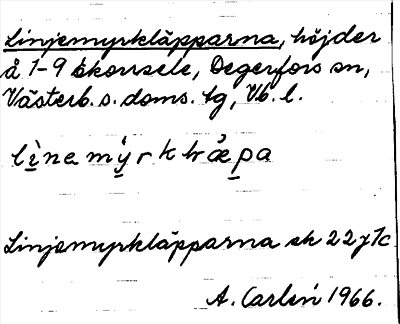 Linjemyrkläpparna, höjder
å 1-9 Ekorrsele, Degerfors sn,
Västerb. s. doms. tg, Vb. l.
Linjemyrkläpparna ek 22 J 7c
A. Carlén 1966.